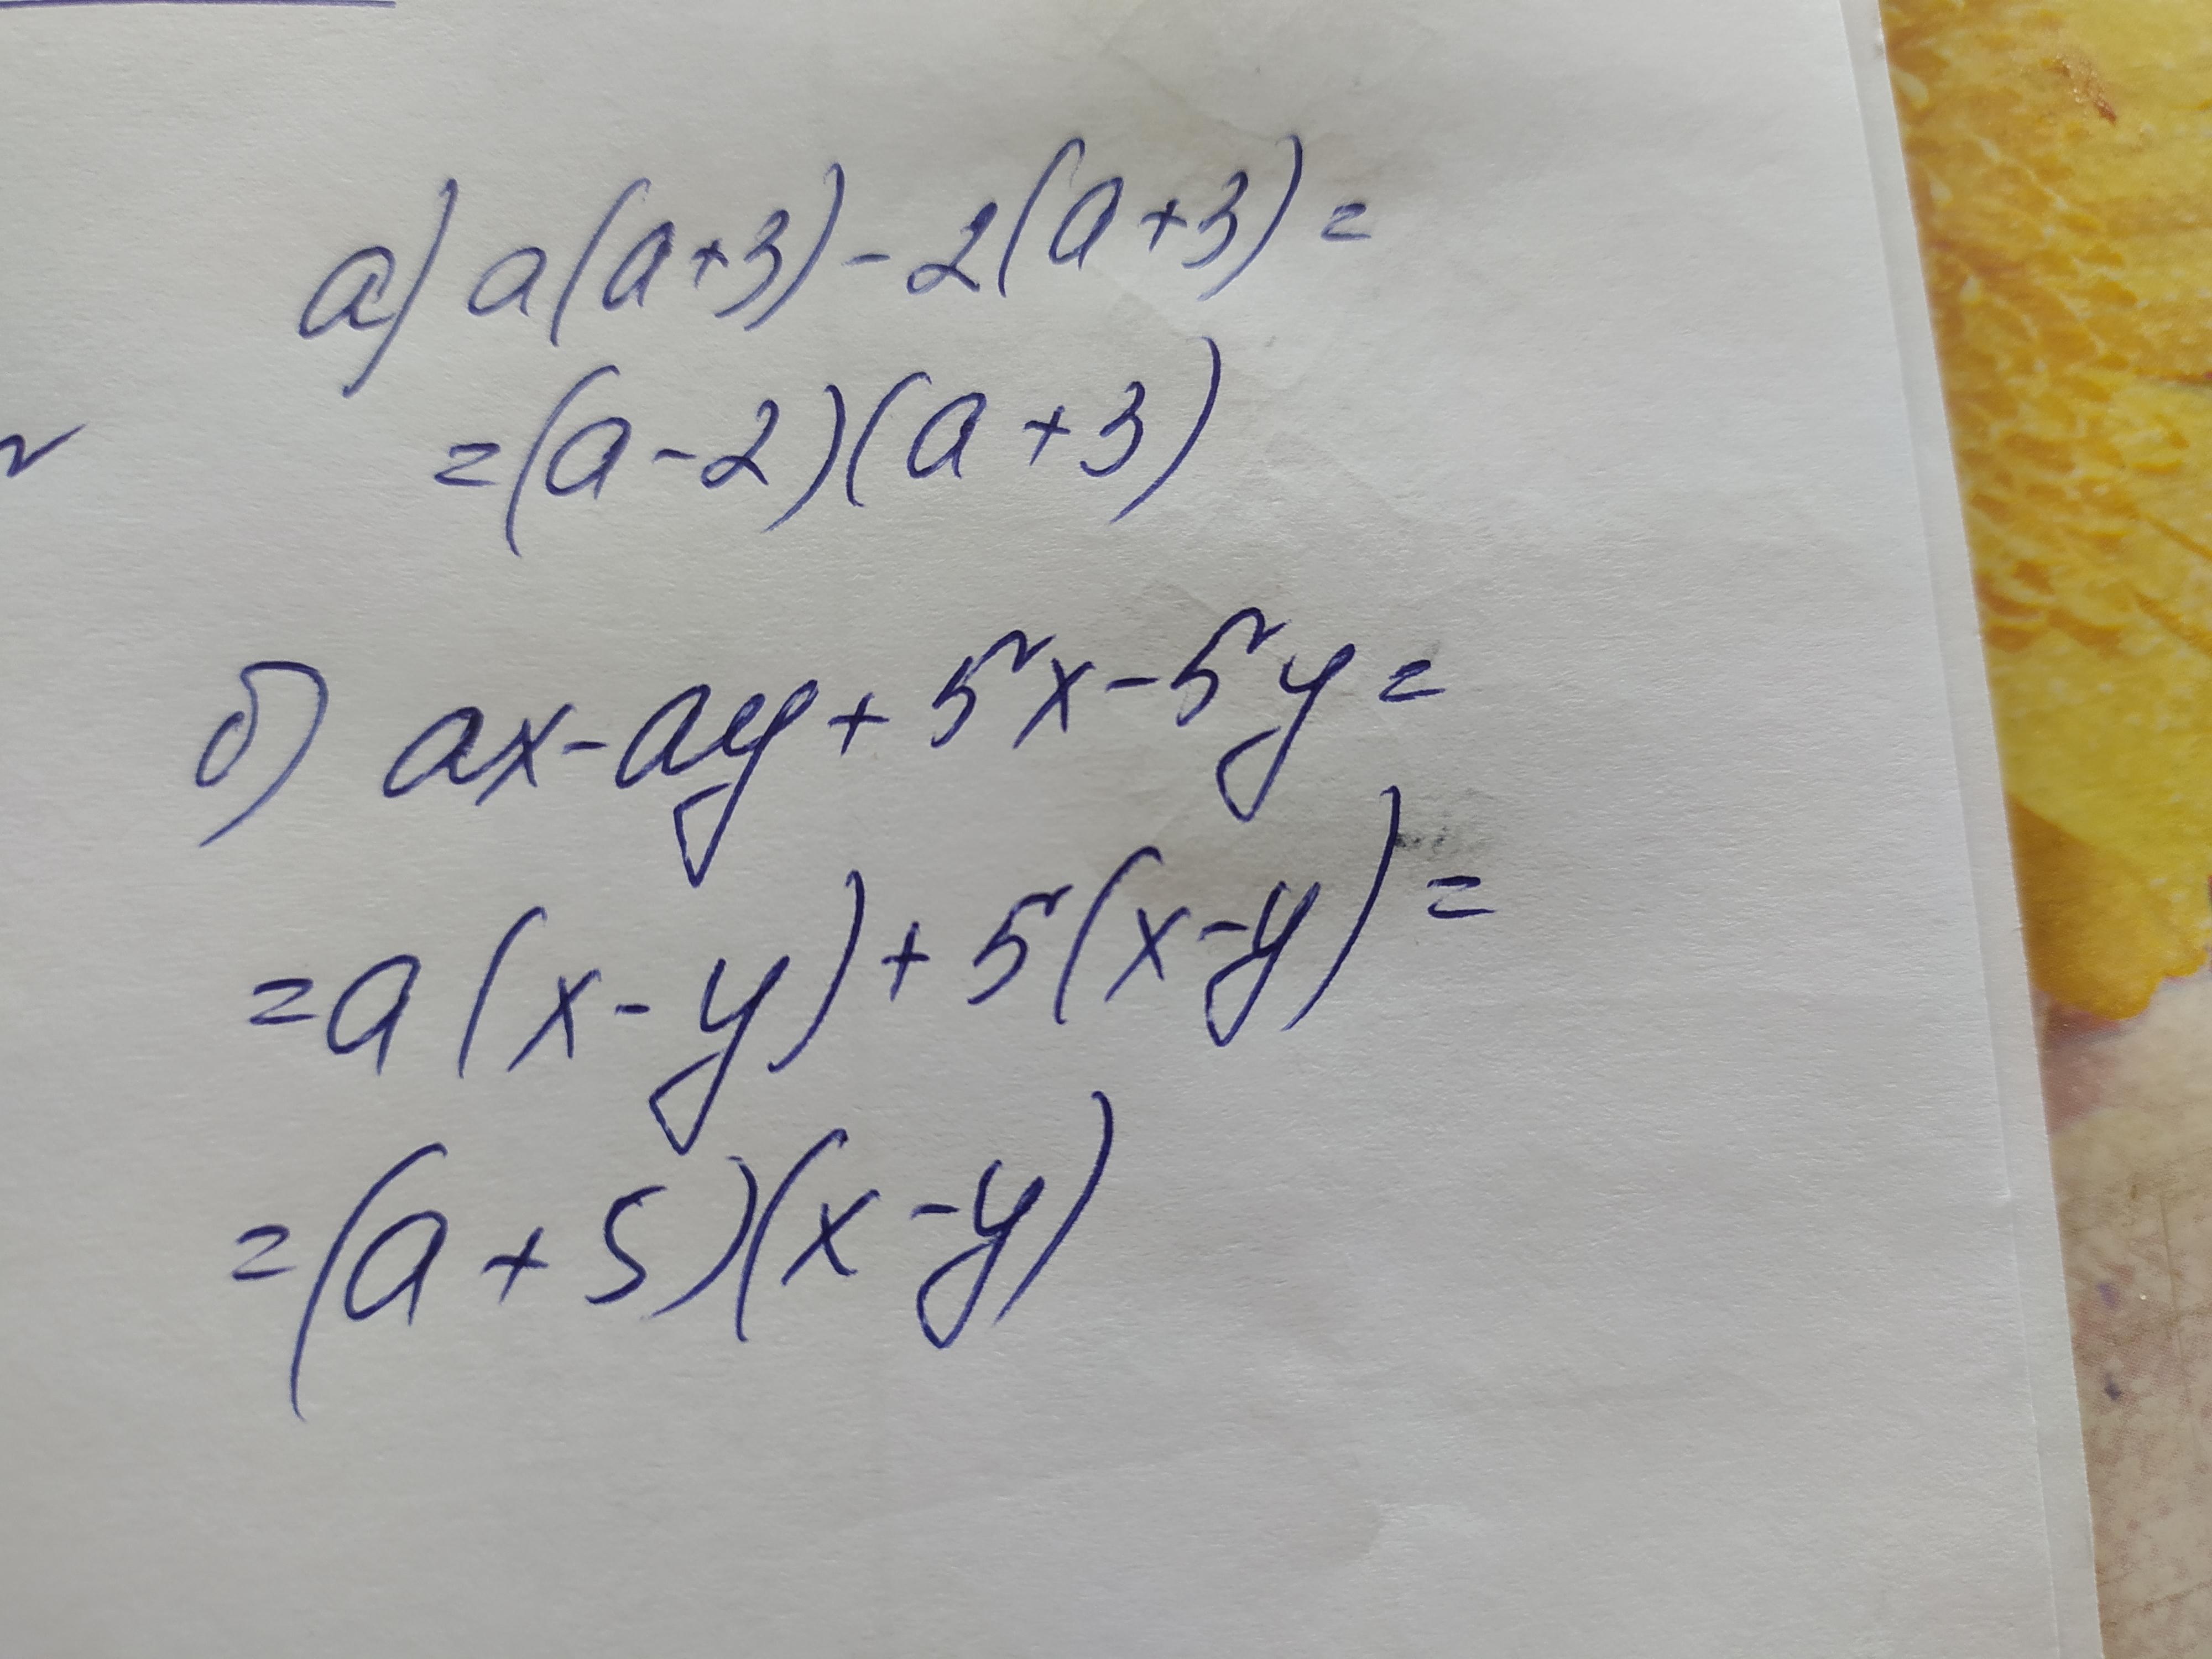 а) a(a+3)-2(a+3)=
=(a-2)(a+3)
б) ax-ay+5x-5y=
=a(x-y)+5(x-y)=
=(a+5)(x-y)